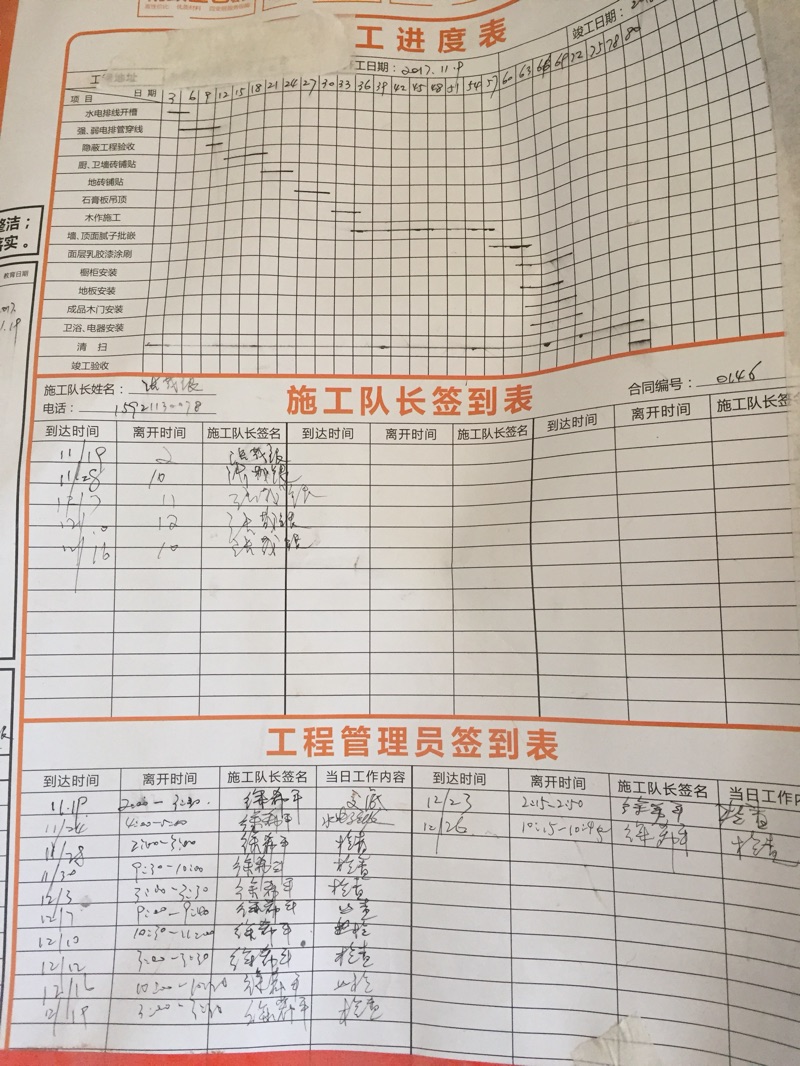 工进度表
工日期：2017.11.19
竣工日期：
工程地址
项目 日期 3 6 9 12 15 18 21 24 27 30 33 36 39 42 45 48 51 54 57 60 63 66 69 72 75 78 80
水电排线开槽
强、弱电排管穿线
隐蔽工程验收
厨、卫墙砖铺贴
地砖铺贴
石膏板吊顶
木作施工
墙、顶面腻子批嵌
面层乳胶漆涂刷
橱柜安装
地板安装
成品木门安装
卫浴、电器安装
清 扫
竣工验收
整洁；
落实。
教育日期
施工队长姓名：
电话：
施工队长签到表
合同编号：0146
到达时间 离开时间 施工队长签名 到达时间 离开时间 施工队长签名 到达时间 离开时间 施工队长签
11/19 2
11/28 10
12/3 11
12/10 12
12/16 10
工程管理员签到表
到达时间 离开时间 施工队长签名 当日工作内容 到达时间 离开时间 施工队长签名 当日工作内
11.19 2:00-3:30 交底 12/23 2:15-2:50 检查
11/24 4:00-5:00 12/26 10:15-10:45 检查
11/28 2:00-3:00 检查
11/30 9:30-10:00 检查
12/3 3:00-3:30 检查
12/7 9:00-9:40
12/10 10:30-11:00
12/12 3:00-3:30 检查
12/16
12/19 检查